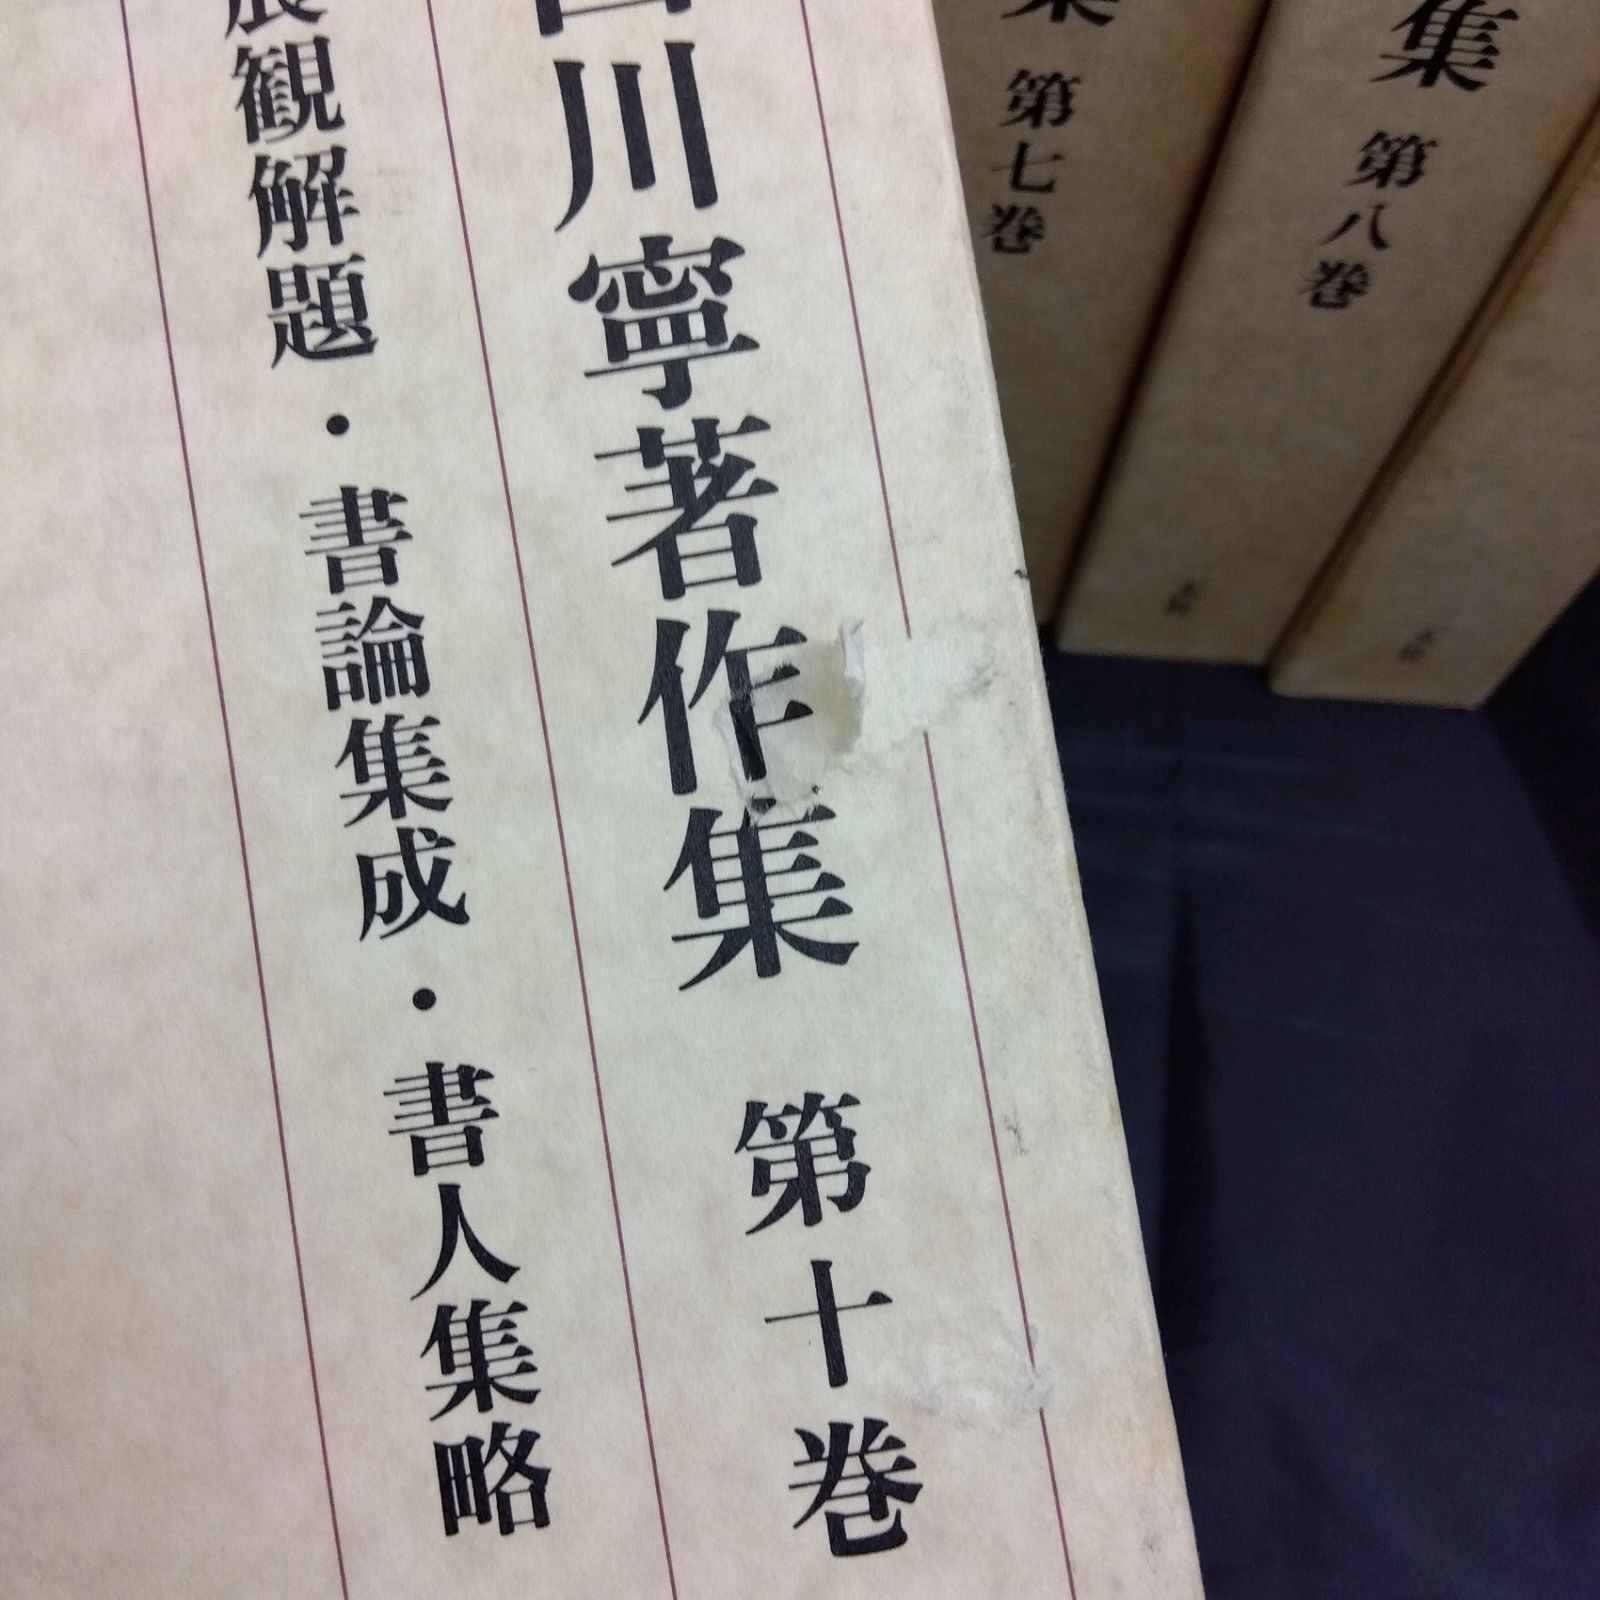 西川寧著作集 第十巻
展観解題・書論集成・書人集略
集 第七巻
集 第八巻